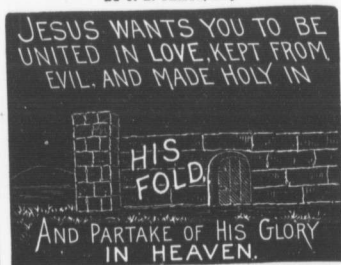 JESUS WANTS YOU TO BE
UNITED IN LOVE, KEPT FROM
EVIL. AND MADE HOLY IN
HIS
FOLD,
AND PARTAKE OF HIS GLORY
IN HEAVEN.